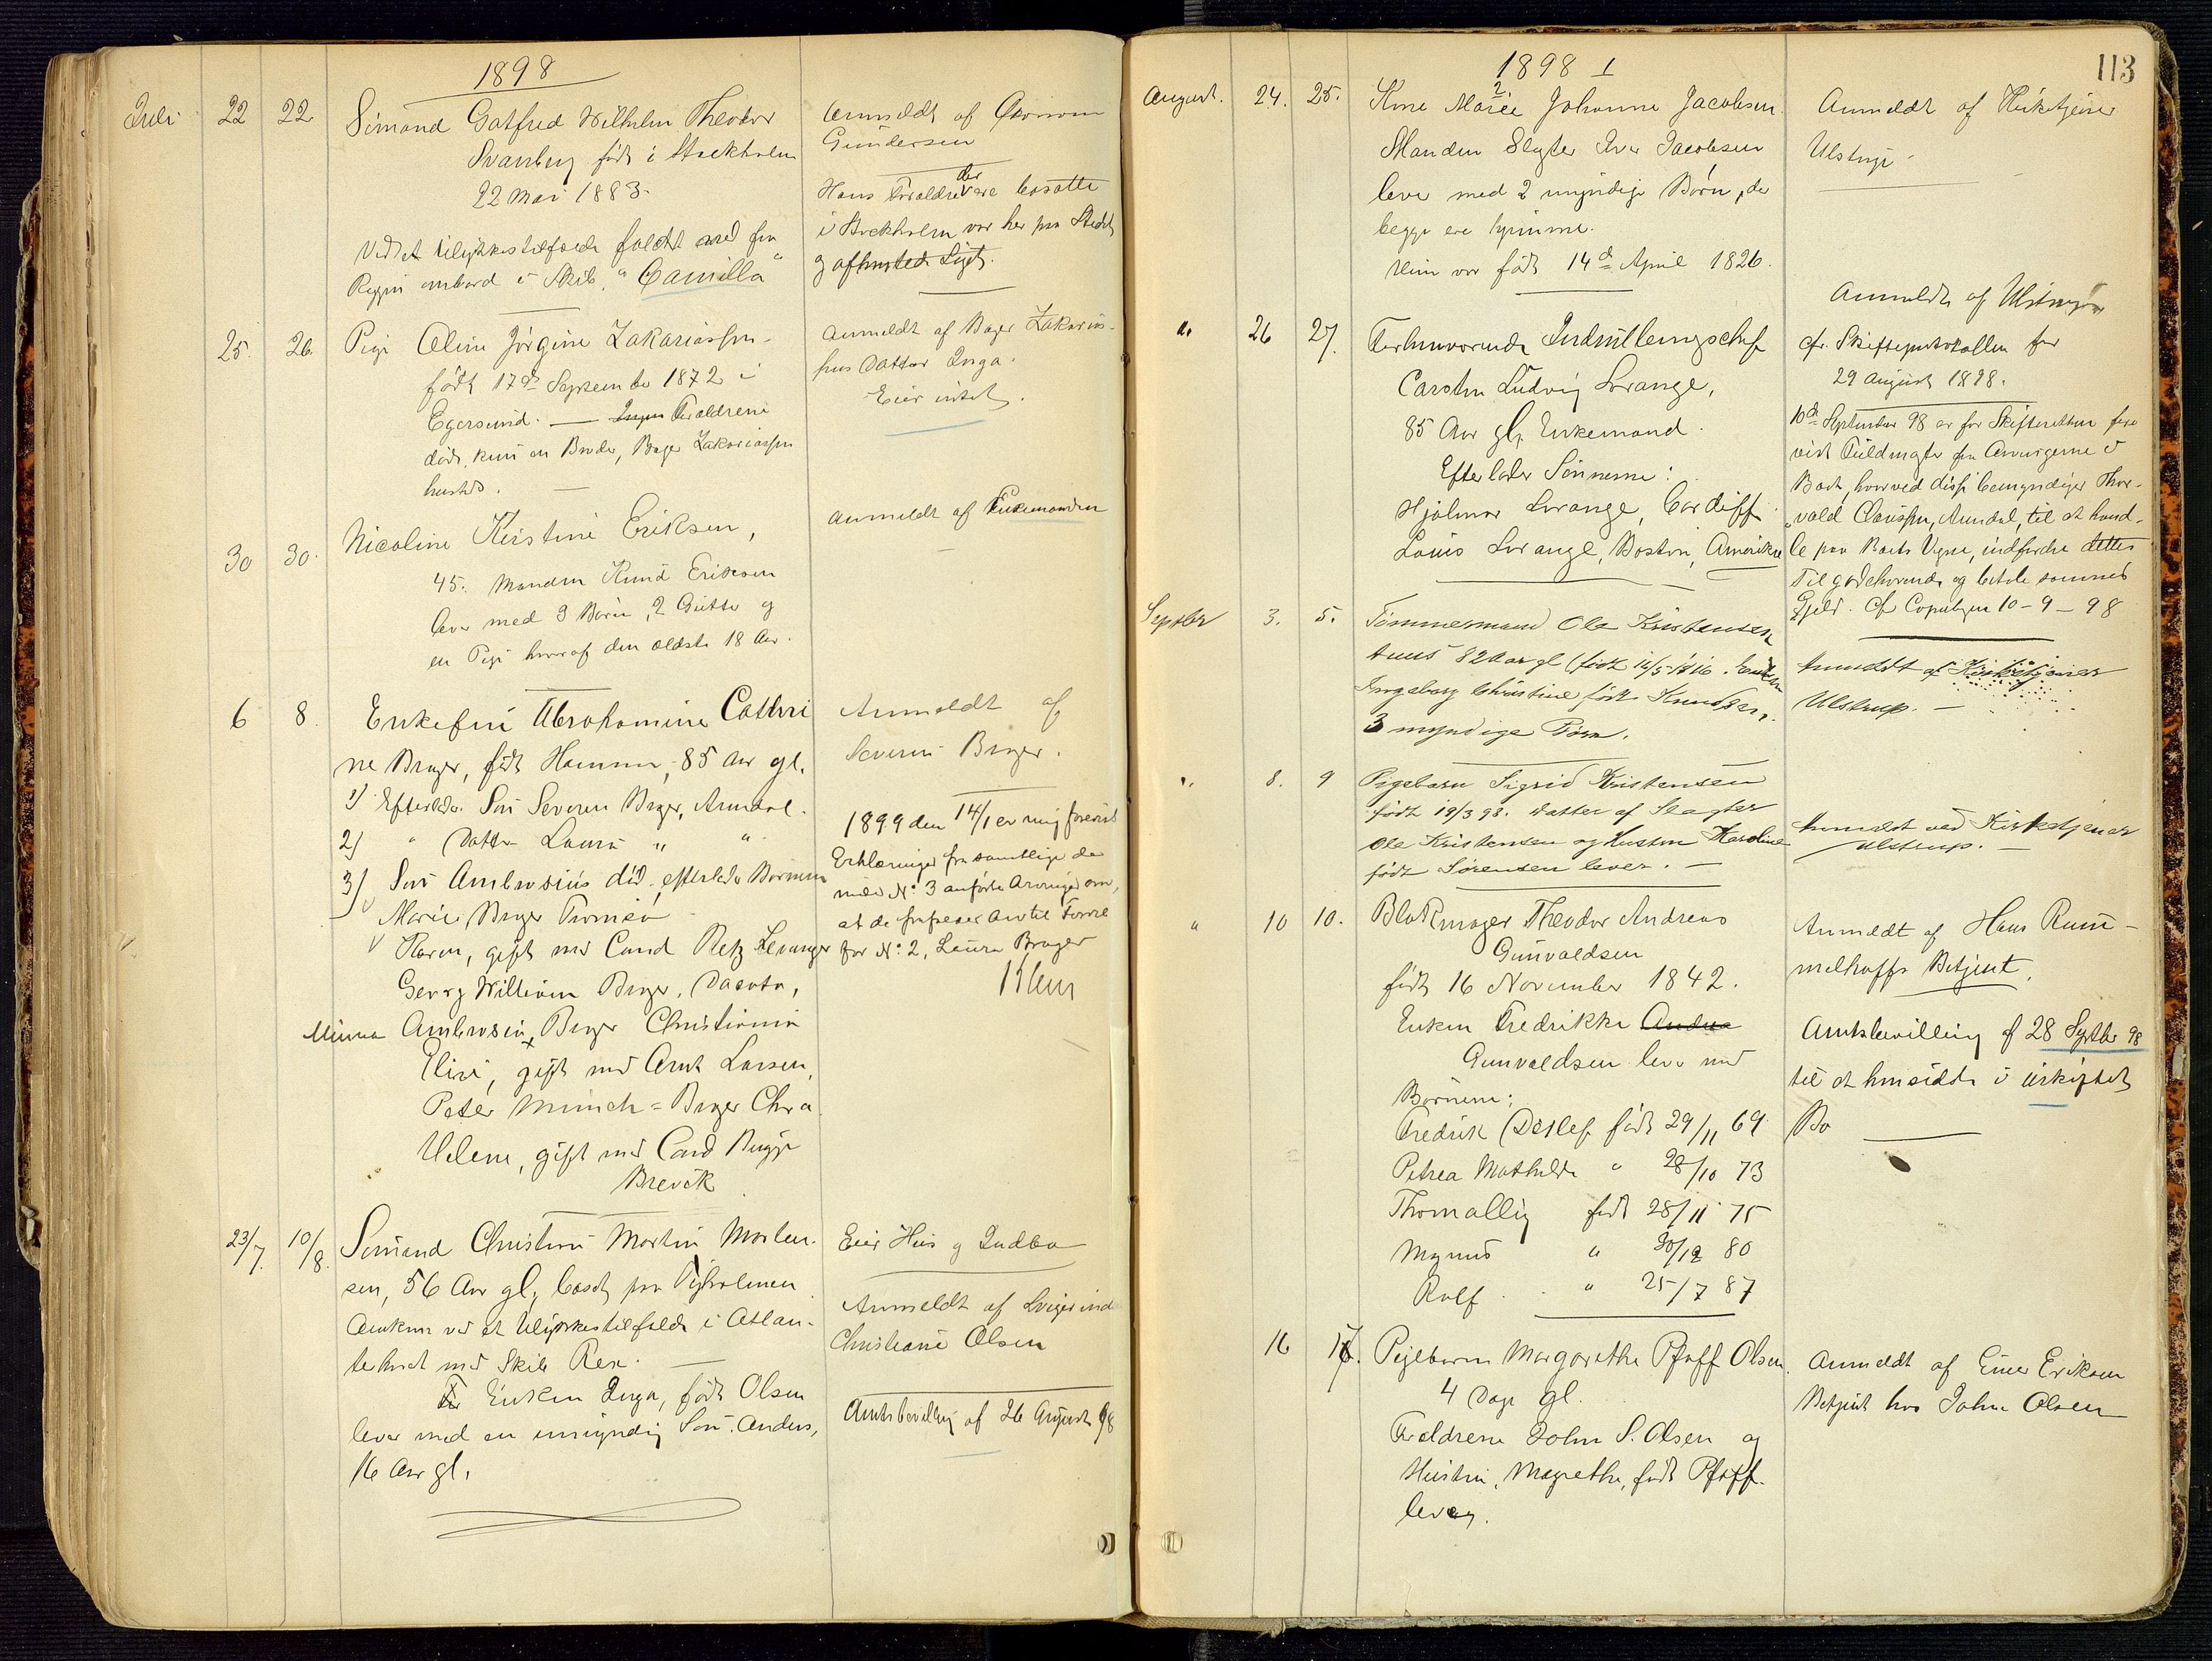 1898
Juli 22 22 Sömand Gotfred Wilhelm Theodor
Svanberg født i Stockholm
22 Mai 1883.
Ved et Ulykkestilfælde faldt ned fra
Riggen ombord i Skib "Camilla"
Anmeldt af Økonom
Gundersen
Hans Forældre der ere bosatte
i Stockholm var her paa Stedet
og afhentede Liget.
25. 26. Pige Oline Jörgine Zakariassen
født 17de September 1872 i
Egersund. — Ingen Forældrene
døde, kun en Broder, Bager Zakariassen
husets.
Anmeldt af Bager Zakarias-
sens Datter Inga.
Eier intet.
30 30. Nicoline Kirstine Eriksen,
45. Manden Knud Eriksen
lever med 3 Børn, 2 Gutter og
en Pige hvoraf den ældste 18 Aar.
Anmeldt af Enkemanden
6 8. Enkefru Abrahamine Cathri
ne Bryer, født Hammer, 85 Aar gl.
1) Efterlader Søn Severin Bryer, Arendal.
2) " Datter Laura " "
3) Søn Ambrosius død, efterlader Børnene
Marie Bryer Tromsø
Karen, gift med Cand Retz Levanger
Georg William Bryer, Dacota,
Minna Ambrosia Bryer Christiania
Elise, gift med Arnt Larsen,
Peter Munch-Bryer Chra
Helene, gift med Cand Bugge
Brevik
Anmeldt af
Severin Bryer.
1899 den 14/1 er mig forevist
Erklæringer fra samtlige de
under N: 3 anførte Arvinger om,
at de frafalder Arv til Fordel
for N: 2, Laura Bryer
Klem
23/7. 10/8. Sömand Christian Martin Morten-
sen, 56 Aar gl, bosat paa Tyholmen
omkom ved et Ulykkestilfælde i Atlan-
terhavet med Skib Rex.
Enken Inga, født Olsen
lever med en umyndig Søn Anders,
16 Aar gl.
Eier Hus og Indbo
Anmeldt af Svigerinde
Christiane Olsen
Amtsbevilling af 26 August 98
1898 113
August. 24. 25. Kone Marie Johanne Jacobsen.
Manden Slagter Iver Jacobsen
lever med 2 umyndige Børn, der
begge ere hjemme.
Hun var født 14de April 1826.
Anmeldt af Kirketjener
Ulstrup.
" 26 27. Forhenværende Indrulleringschef
Carsten Ludvig Lorange,
85 Aar gl, Enkemand.
Efterlader Sønnerne:
Hjalmar Lorange, Cardiff
Louis Lorange, Boston, Amerika
Anmeldt af Ulstrup
cfr. Skifteprotokollen for
29 August 1898.
10de September 98 er for Skifteretten fore
vist Fuldmagter fra Arvingerne i
Boet, hvorved disse bemyndiger Thor-
vald Clausen, Arendal, til at hand-
le paa Boets Vegne, indfordre dettes
Tilgodehavende og betale sammes
Gjeld. Cf Copibogen 10-9-98
Septbr 3. 5. Tømmermand Ole Kristensen
82 Aar gl (født 16/5 1816. Enken
Ingeborg Christine født Knudsen.
3 myndige Børn.
Anmeldt af Kirketjener
Ulstrup. —
". 8. 9 Pigebarn Sigrid Kristensen
født 19/3 98. Datter af Slagter
Ole Kristensen og Hustru Karoline
født Sørensen lever. —
Anmeldt ved Kirketjener
Ulstrup. —
" 10 10. Blokmager Theodor Andreas
Gunvaldsen
født 16 November 1842.
Enken Fredrikke Andrea
Gunvaldsen lever med
Børnene:
Fredrik Detlef født 29/11 69
Petrea Mathilde " 28/10 73
Thom Ally født 28/11 75
Magnus " 30/12 80
Rolf " 25/7 87
Anmeldt af Hans Rum-
melhoffs Betjent.
Amtsbevilling af 28 Septbr 98
til at hensidde i uskiftet
Bo
16 17. Pigebarn Margarethe Pfaff Olsen.
4 Dage gl.
Forældrene John S. Olsen og
Hustru, Magrethe, født Pfaff.
lever.
Anmeldt af Einer Eriksen
Betjent hos John Olsen